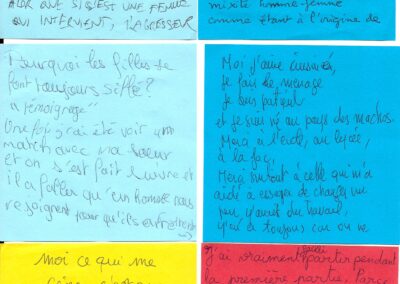 ALOR QUE SI S'EST UNE FEMME
QUI INTERVIENT, L'AGRESSEUR
mixité homme-femme
comme étant à l'origine de
Pourquoi les filles se
font toujours sifflé ?
"témoignage"
Une fois j'ai été voir un
match avec ma soeur
et on s'est fait suivre et
il a fallu qu'un homme nous
rejoignent pour qu'ils
Moi j'aime cuisiner,
Je fais le ménage
Je suis patient
et je suis né au pays des machos.
Merci à l'école, au lycée,
à la fac,
Merci surtout à celle qui m'a
aidé a essayer de changer un
peu, y'aura du travail,
y'en a toujours car on ne
Moi ce qui me
J'ai vraiment partir pendant
la première partie. Parce